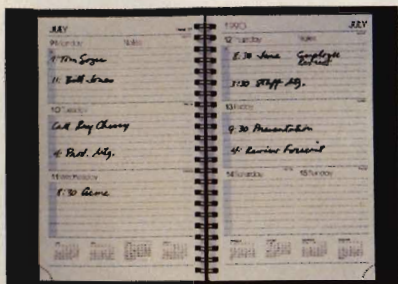 JULY
9 Monday Notes
9 Tom
11: Bill Jones
10 Tuesday
Call Ray Cherry
4: Prod. Mtg.
11 Wednesday
8:30 Acme
1990 JULY
12 Thursday Notes
8:30 Jane Employee
3:30 Staff Mtg.
13 Friday
9:30 Presentation
4: Review Forecast
14 Saturday 15 Sunday